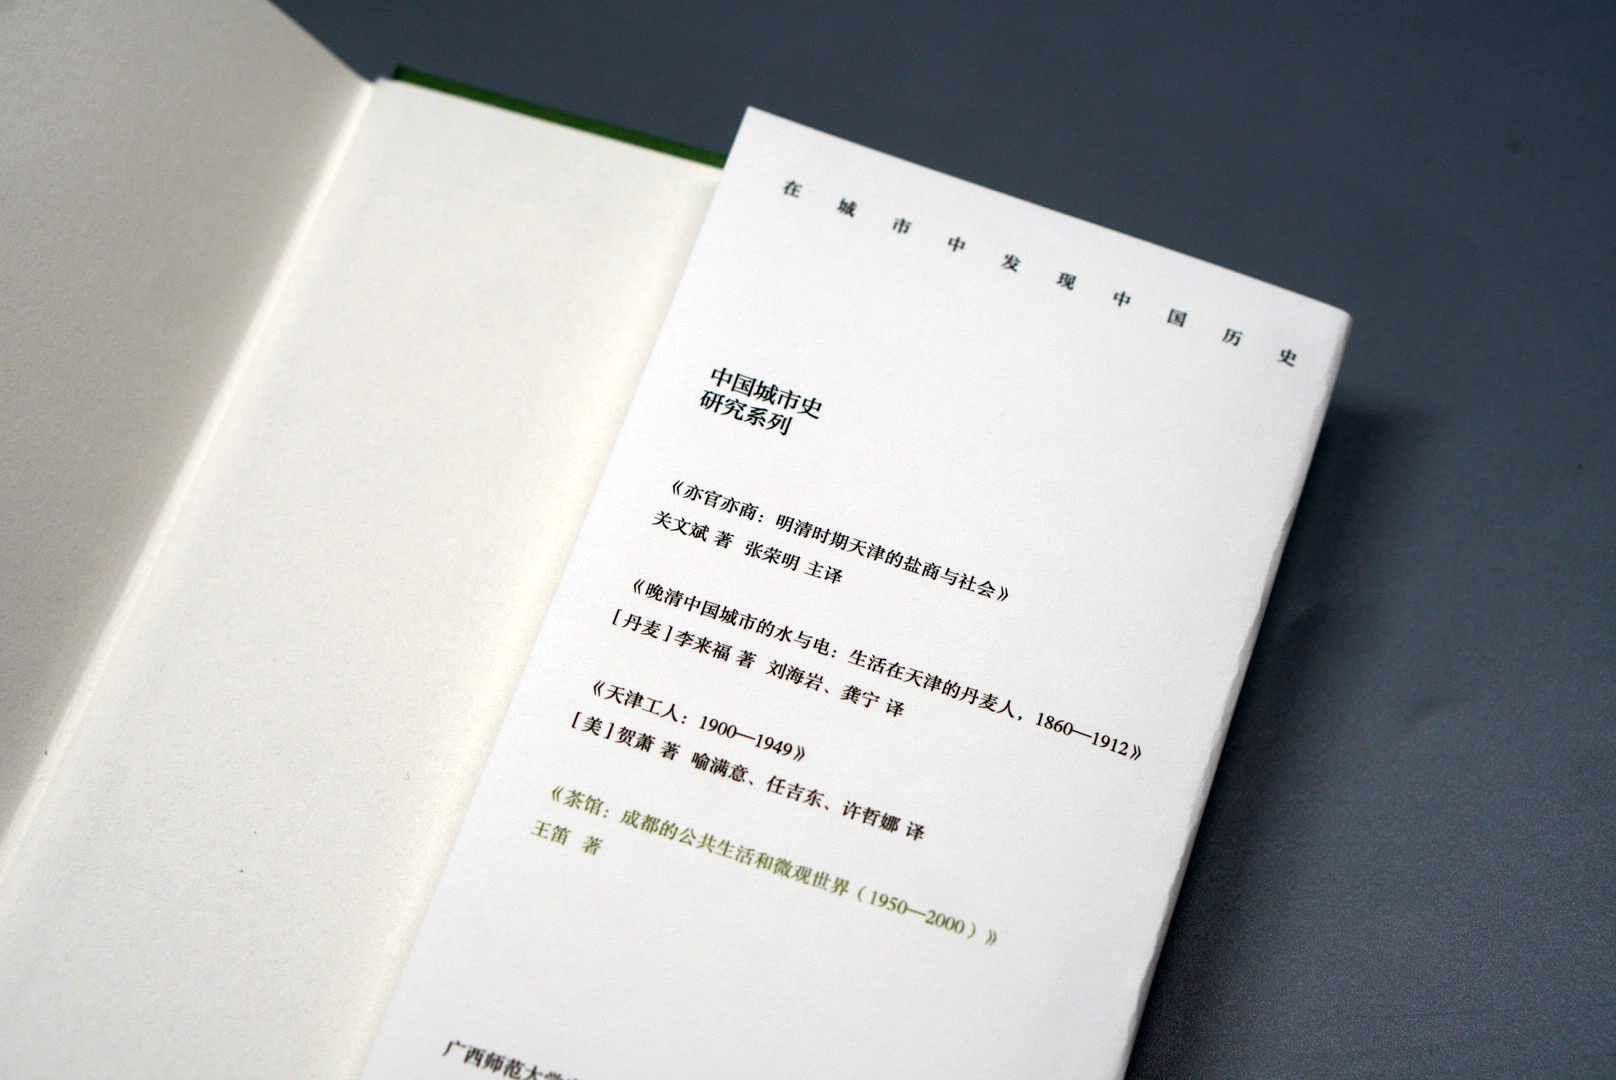 在城市中发现中国历史
中国城市史
研究系列
《亦官亦商：明清时期天津的盐商与社会》
关文斌 著 张荣明 主译
《晚清中国城市的水与电：生活在天津的丹麦人，1860—1912》
[丹麦]李来福 著 刘海岩、龚宁 译
《天津工人：1900—1949》
[美]贺萧 著 喻满意、任吉东、许哲娜 译
《茶馆：成都的公共生活和微观世界（1950—2000）》
王笛 著
广西师范大学